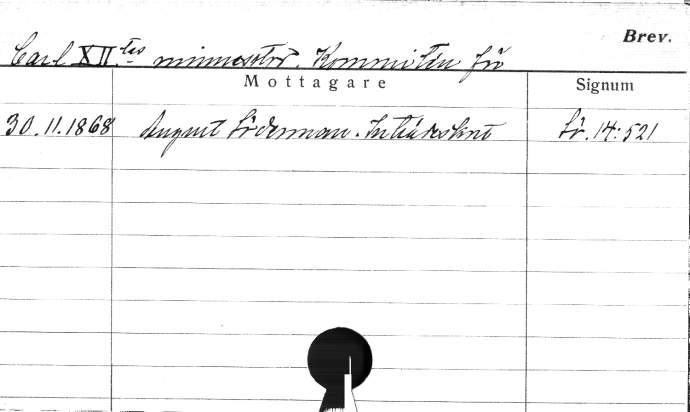 Brev.
Carl XII.tes minnesstod. Kommittén för
Mottagare
Signum
30.11.1868 August Söderman. Inträdeskort Sö. 14:521